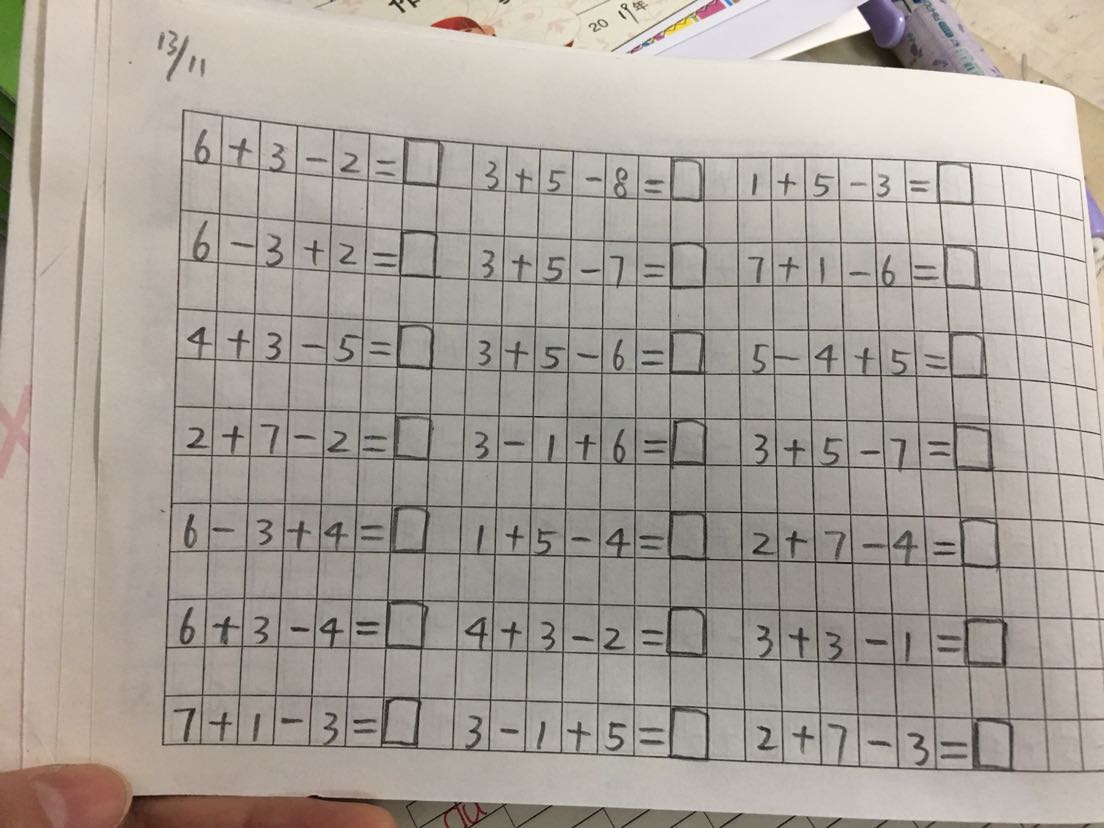 2019年
13/11
6+3-2=□ 3+5-8=□ 1+5-3=□
6-3+2=□ 3+5-7=□ 7+1-6=□
4+3-5=□ 3+5-6=□ 5-4+5=□
2+7-2=□ 3-1+6=□ 3+5-7=□
6-3+4=□ 1+5-4=□ 2+7-4=□
6+3-4=□ 4+3-2=□ 3+3-1=□
7+1-3=□ 3-1+5=□ 2+7-3=□